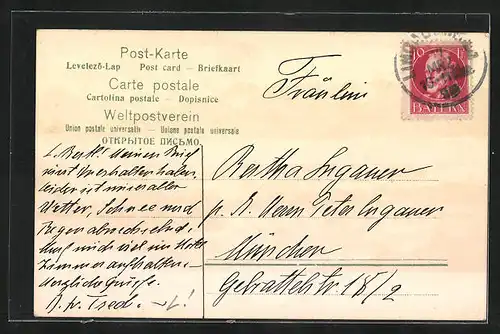 Post-Karte
Levelező-Lap Post card – Briefkaart
Carte postale
Cartolina postale – Dopisnice
Weltpostverein
Union postale universelle – Unione postale universale
ОТКРЫТОЕ ПИСЬМО.
10 PF
BAYERN
Fräulein
Bertha Ingauer
p. A. Herrn Peter Ingauer
München
Gebsattelstr 18/2
L. Bertha! Deinen Brief
leider ist
Wetter, Schnee und
Regen abwechselnd.
muß mich viel im
Zimmer aufhalten.
Herzliche Grüsse.